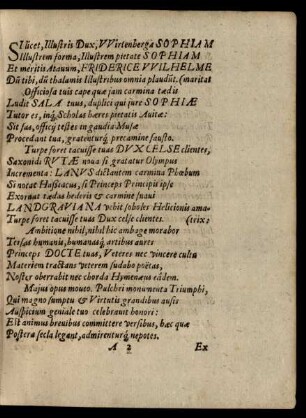 SI licet, Illustris Dux, VVirtenberga SOPHIAM
Illustrem forma, Illustrem pietate SOPHIAM
Et meritis Atavum, FRIDERICE VVILHELME,
Dū tibi, dū thalamis Illustribus omnia plaudūt. (maritat
Officiosa tuis capeq́ue jam carmina tædis
Ludit SALA tuus, duplici qui jure SOPHIÆ
Tutor es, inq́; Scholas hæres pietatis Avitæ:
Sit fas, officj testes in gaudia Musæ
Procedant tua, gratenturq́; precamine fausta.
Turpe foret tacuisse tuas DUX CELSE clientes,
Saxonidi RUTÆ nova si gratatur Olympus
Incrementa: LANUS dictantem carmina Phœbum
Si notat Hassiacus, si Principis Principij ipse
Exornat tædas hederis & carmine suavi
LANDGRAVIANA nobis soboles Heliconis ama-
Turpe foret tacuisse tuas Dux celse clientes. (trix;
Ambitione nihil, nihil hic ambage morabor
Tersas humanis, humanasq́; artibus aures
Princeps DOCTE tuas, Veteres nec vincere cultu
Materiem tractans veterem sudabo poëtas,
Noster oberrabit nec chorda Hymenæus eâdem.
Majus opus moveo. Pulchri monumenta Triumphi,
Qui magno sumptu & Virtutis grandibus ausis
Auspicium geniale tuo celebravit honori:
Est animus brevibus committere versibus, hæc quæ
Postera secla legant, admirenturq́; nepotes.
A 2 Ex